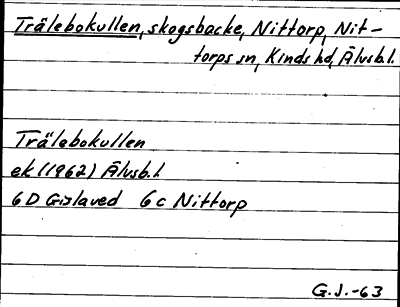 Trälebokullen, skogsbacke, Nittorp, Nit-
torps sn, Kinds hd, Älvsb.l.
Trälebokullen
ek (1962) Älvsb.l
6D Gislaved 6c Nittorp
G.J.-63